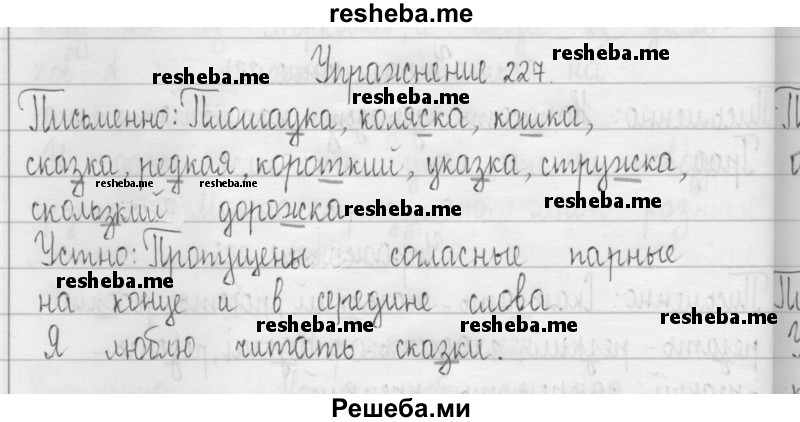 resheba.me
Упражнение 227.
resheba.me resheba.me
resheba.me
Письменно: Площадка, коляска, кошка,
сказка, редкая, короткий, указка, стружка,
resheba.me resheba.me
скользкий дорожка.
resheba.me resheba.me
Устно: Пропущены согласные парные
resheba.me resheba.me
на конце и в середине слова.
resheba.me resheba.me resheba.me
Я люблю читать сказки.
Решеба.ми